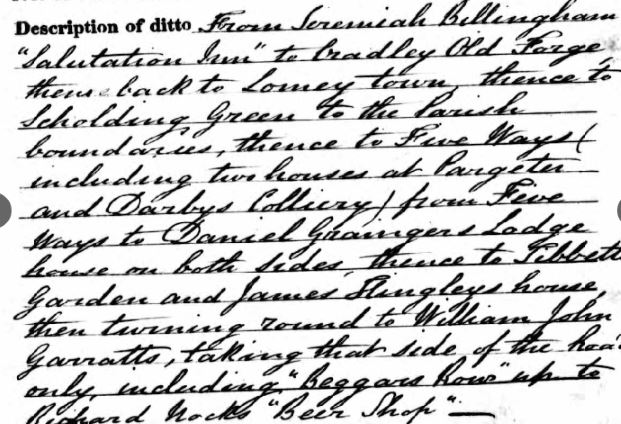 Description of ditto From Jeremiah Billingham
"Salutation Inn" to Cradley Old Forge,
thence back to Lomey town, thence to
Scholding Green to the Parish
boundaries, thence to Five Ways (
including two houses at Pargeter
and Darbys Colliery) from Five
Ways to Daniel Graingers Lodge
house on both sides, thence to Tibbett
Garden and James Slingleys house,
then turning round to William John
Garratts, taking that side of the Road
only, including "Beggars Row" up to
Richard Nocks "Beer Shop" —